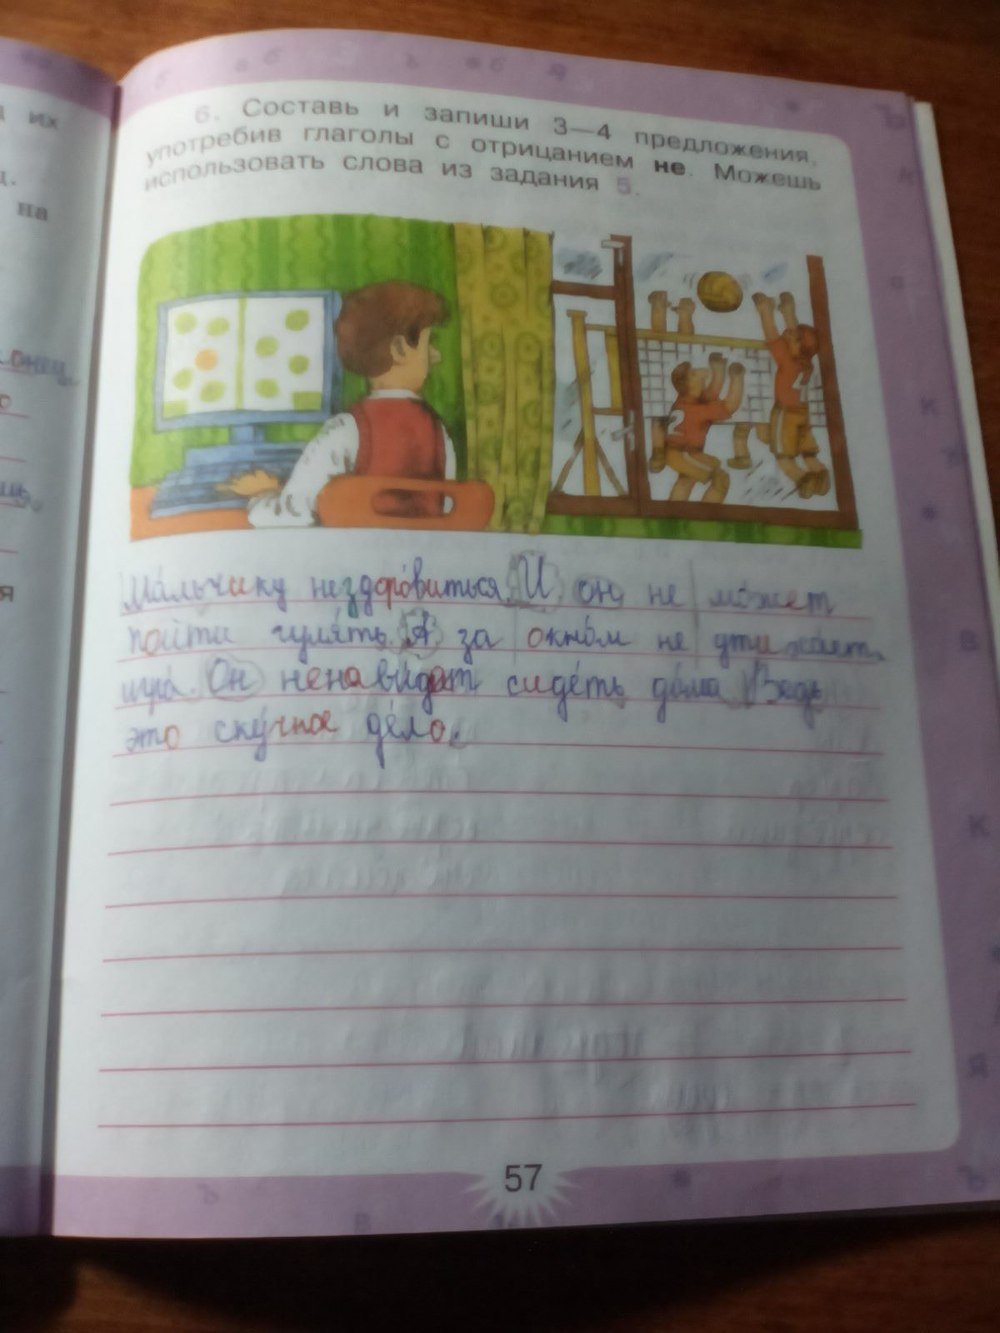 6. Составь и запиши 3—4 предложения,
употребив глаголы с отрицанием не. Можешь
использовать слова из задания 5.
Ма́льчику нездоро́виться. И он не мо́жет
пойти гуля́ть. А за окно́м не утиха́ет
игра́. Он ненави́дит сиде́ть до́ма. Ведь
это ску́чное де́ло.
57
их
на
я